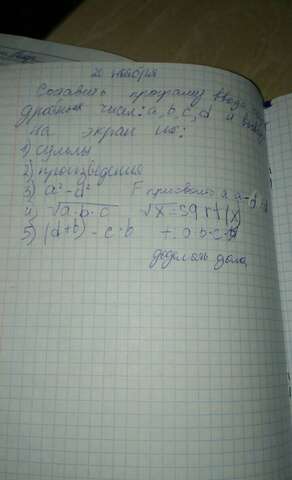 2 ноября
Составить програму ввода
дробных чисел: a, b, c, d и вывода
на экран их:
1) суммы
2) произведение
3) a² - d² F присвоить a, a-d
4) √a·b·c √x = sqrt(x)
5) (d+b) - c·b + a b·c·d
доделать дома